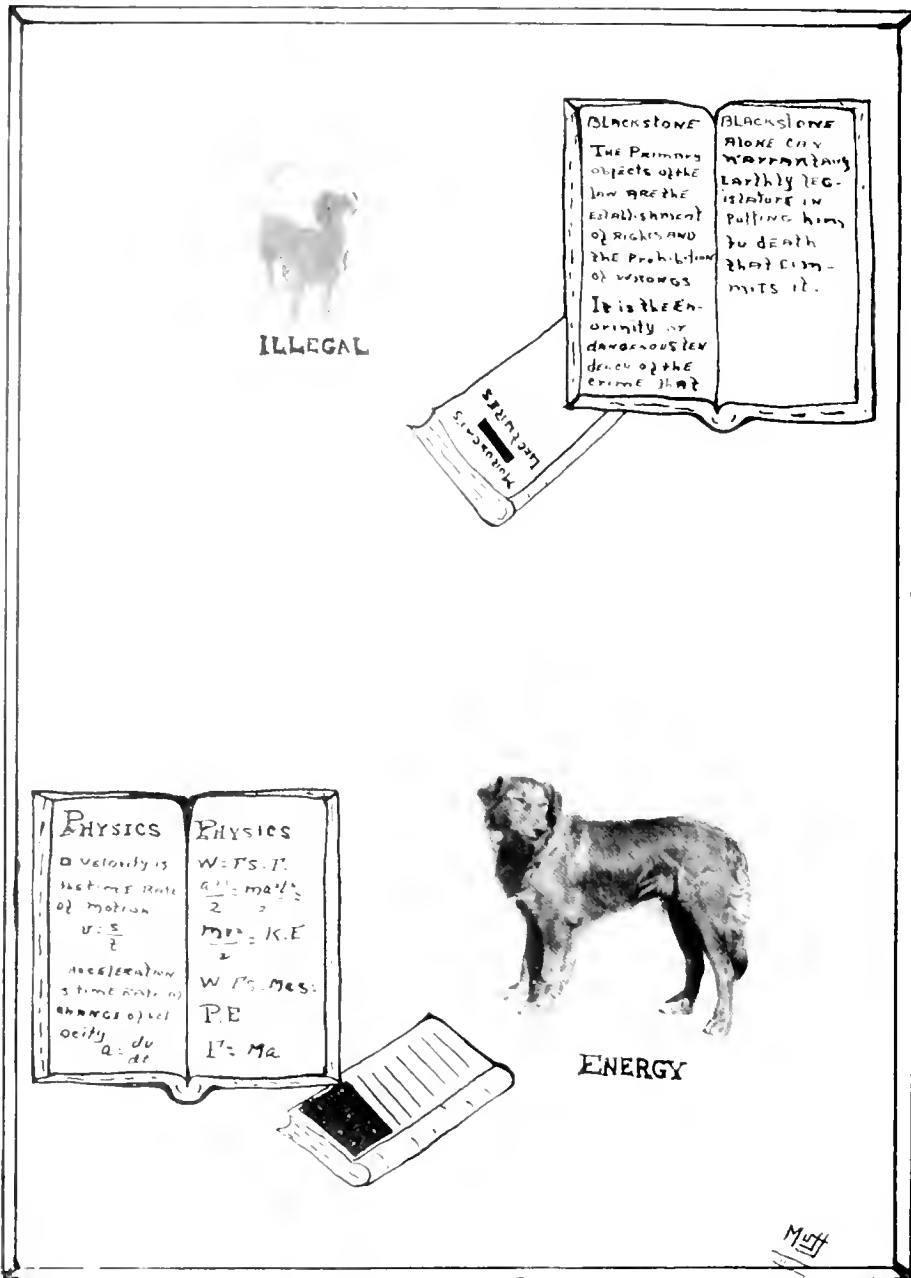 BLACKSTONE
THE PRIMARY
OBJECTS OF THE
LAW ARE THE
ESTABLISHMENT
OF RIGHTS AND
THE PROHIBITION
OF WRONGS
IT IS THE EN-
ORINITY OR
DANGEROUS TEN
DENCY OF THE
CRIME THAT
BLACKSTONE
ALONE CAN
WARRANT ANY
EARTHLY LEG-
ISLATURE IN
PUTTING HIM
TO DEATH
THAT COM-
MITS IT.
ILLEGAL
LECTURES
PHYSICS
VELOCITY IS
THE TIME RATE
OF MOTION
v = s/t
ACCELERATION
S TIME RATE OF
CHANGE OF VEL
OCITY
a = dv/dt
PHYSICS
W = FS. F.
mv²/2 = K.E
W FS. Mas:
P.E
F = Ma
ENERGY
Muff